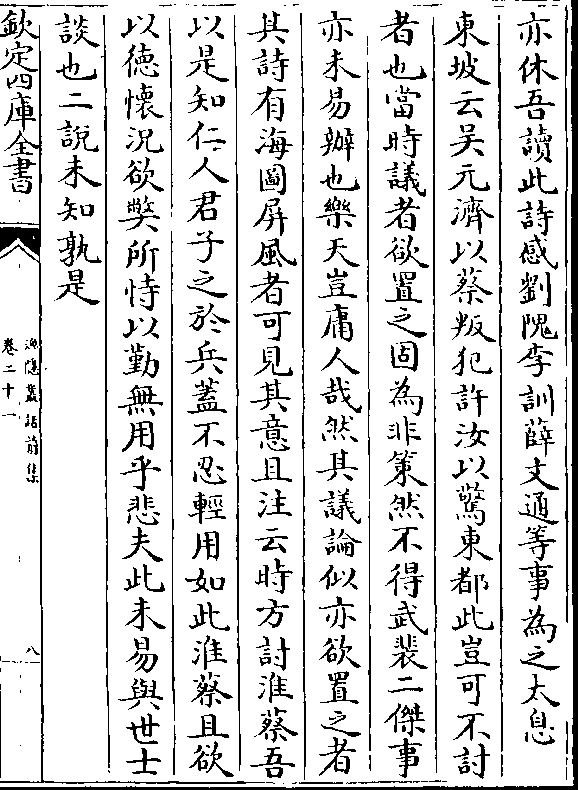 亦休吾讀此詩感劉隗李訓薛文通等事為之太息
東坡云吴元濟以蔡叛犯許汝以驚東都此豈可不討
者也當時議者欲置之固為非策然不得武裴二傑事
亦未易辦也樂天豈庸人哉然其議論似亦欲置之者
其詩有海圖屏風者可見其意且注云時方討淮蔡吾
以是知仁人君子之於兵蓋不忍輕用如此淮蔡且欲
以德懷況欲弊所恃以勤無用乎悲夫此未易與世士
談也二說未知孰是
欽定四庫全書
漁隱叢話前集
卷二十一
八